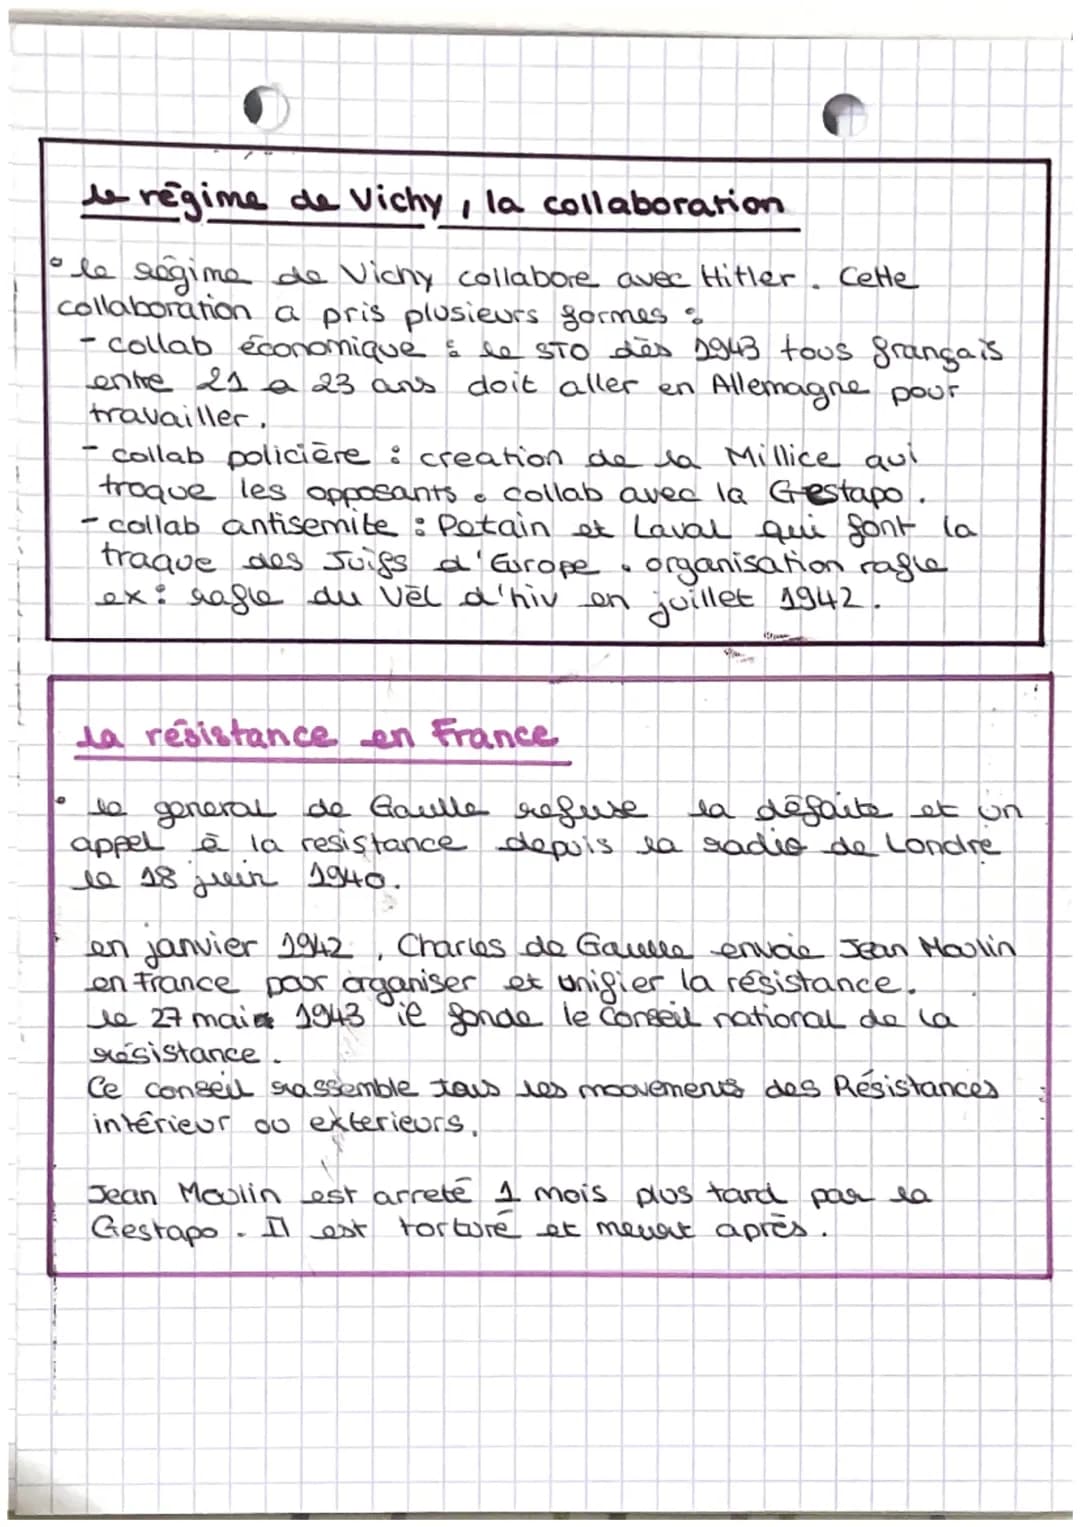 le régime de Vichy, la collaboration
• le régime de Vichy collabore avec Hitler. Cette
collaboration a pris plusieurs formes :
- collab économique : le STO dès 1943 tous français
entre 21 a 23 ans doit aller en Allemagne pour
travailler.
- collab policière : creation de la Millice qui
traque les opposants. collab avec la Gestapo.
- collab antisemite : Petain et Laval qui font la
traque des Juifs d'Europe. organisation rafle
ex : rafle du Vél d'hiv en juillet 1942.
la résistance en France
• le general de Gaulle refuse la défaite et un
appel à la resistance depuis la radio de Londre
le 18 juin 1940.
en janvier 1942, Charles de Gaulle envoie Jean Moulin
en France pour organiser et unifier la résistance.
le 27 mai 1943 il fonde le Conseil national de la
résistance.
Ce conseil rassemble tous les mouvements des Résistances
intérieur ou exterieurs.
Jean Moulin est arreté 1 mois plus tard par la
Gestapo. Il est torturé et meurt après.